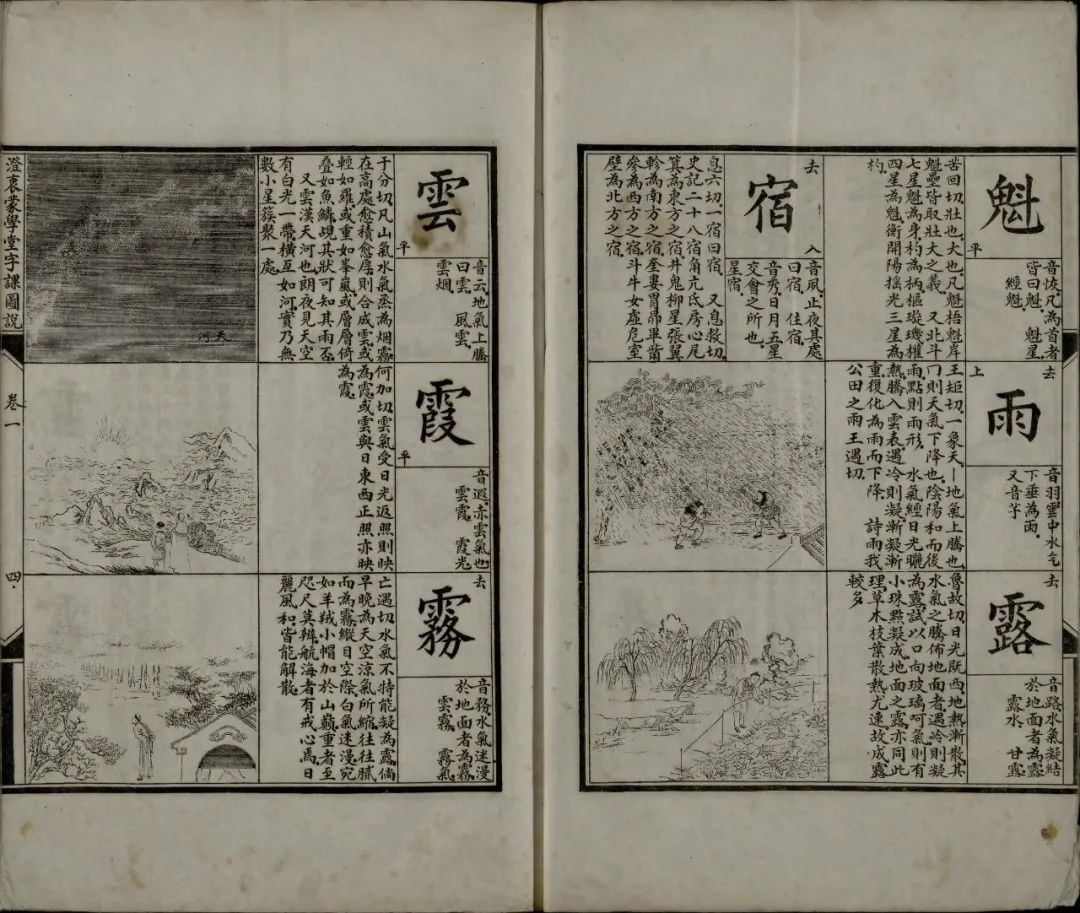 魁
平
音恢凡為首者
皆曰魁 魁星
經魁
苦回切壯也大也凡魁梧魁岸
魁壘皆取壯大之義 又北斗
七星魁為身杓為柄樞璇璣權
四星為魁衡開陽搖光三星為
杓
宿
去
入
音夙止夜其處
曰宿 住宿
音秀日月五星
交會之所也
星宿
息六切一宿曰宿 又息救切
史記二十八宿角亢氐房心尾
箕為東方之宿井鬼柳星張翼
軫為南方之宿奎婁胃昴畢觜
參為西方之宿斗牛女虛危室
壁為北方之宿
雨
上
去
音羽雲中水气
下垂為雨
又音芋
王矩切一象天丨地氣上騰也
冂則天氣下降也陰陽和而後
雨點則雨形 水氣經日光曬
熱騰入雲表遇冷則凝漸凝漸
重復化為雨而下降 詩雨我
公田之雨王遇切
露
去
音路水氣凝結
於地面者為露
露水 甘露
魯故切日光既西地熱漸散其
水氣之騰佈地面者遇冷則凝
為露試以口向玻璃呵氣則有
小珠點凝成地面之露亦同此
理草木枝葉散熱尤速故成露
較多
雲
平
音云地氣上騰
曰雲 風雲
雲烟
于分切凡山氣水氣蒸為烟霧
在高處愈積愈厚則合成雲或
輕如羅或重如峯嵐或層層倚
叠如魚鱗覘其狀可知其雨否
又雲漢天河也朗夜見天空
有白光一帶橫亙如河實乃無
數小星簇聚一處
天河
霞
平
音遐赤雲氣也
雲霞 霞光
何加切雲氣受日光返照則映
為霞或雲與日東西正照亦映
為霞
霧
去
音務水氣迷漫
於地面者為霧
雲霧 霧氣
亡遇切水氣不待能凝為露倘
早晚為天空涼氣所縮往往膩
而為霧縱目空際白氣迷漫宛
如羊羢小帽加於山巔重者至
咫尺莫辨航海者有戒心焉日
麗風和皆能解散
澄衷蒙學堂字課圖說
卷一
四